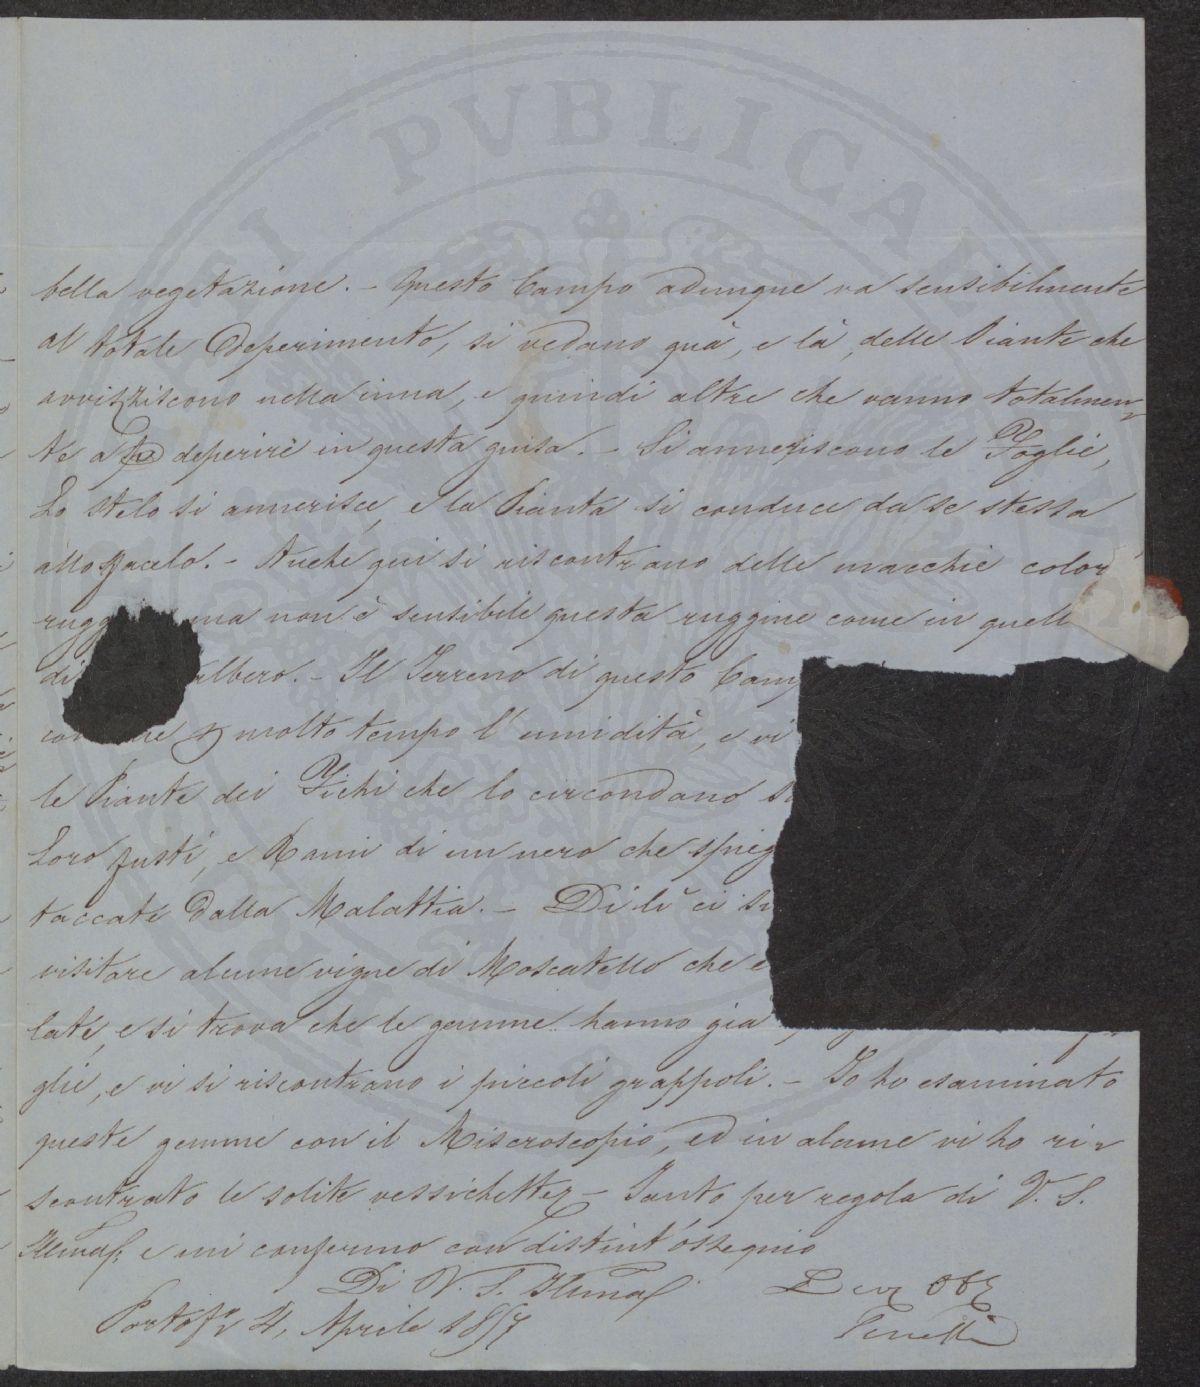 SI PVBLICAE
bella vegetazione. – Questo Campo adunque va sensibilmente
al totale deperimento, si vedano quà, e là, delle Piante che
avvizziscono nella cima, e quindi altre che vanno totalmen-
te a deperire in questa guisa. – Si anneriscono le Foglie,
Lo stelo si annerisce, e la Pianta si conduce da se stessa
allo sfacelo. – Anche qui si riscontrano delle macchie color
rugg ma non è sensibile questa ruggine come in quell
di albero. – Il Terreno di questo Camp
molto tempo l'umidità, e vi
le Piante dei Fichi che lo circondano
Loro fusti, e Rami di un nero che spieg
taccate dalla Malattia. – Di lì ci
visitare alcune vigne di Moscatello che
late, e si trova che le gemme hanno già
glie, e vi si riscontrano i piccoli grappoli. – Io ho esaminato
queste gemme con il Miscroscopio, ed in alcune vi ho ri-
scontrato le solite vessichette – Tanto per regola di V. S.
Illma, e mi confermo con distint'ossequio
Di V. S. Illma
Portof 4, Aprile 1857